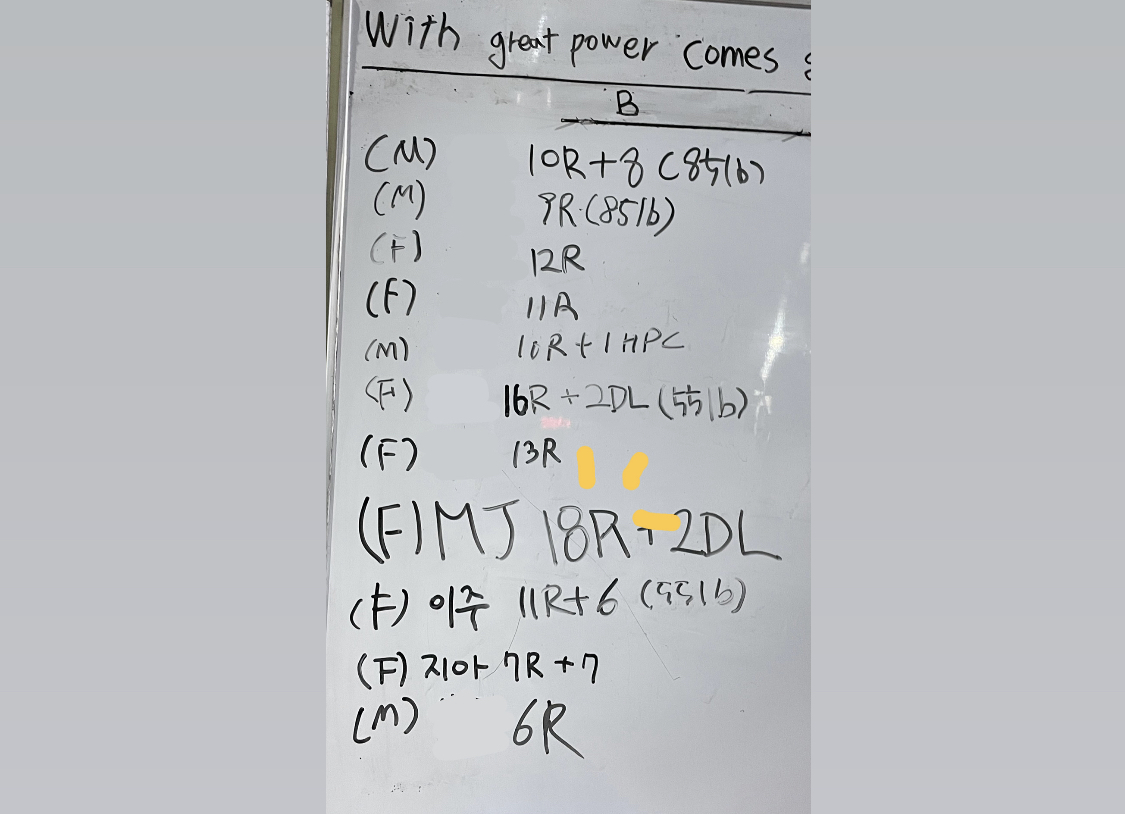 With great power comes
B
(M) 10R+8 (85lb)
(M) 9R (85lb)
(F) 12R
(F) 11R
(M) 10R+1HPC
(F) 16R+2DL (55lb)
(F) 13R
(F) MJ 18R+2DL
(F) 이주 11R+6 (55lb)
(F) 지아 7R+7
(M) 6R